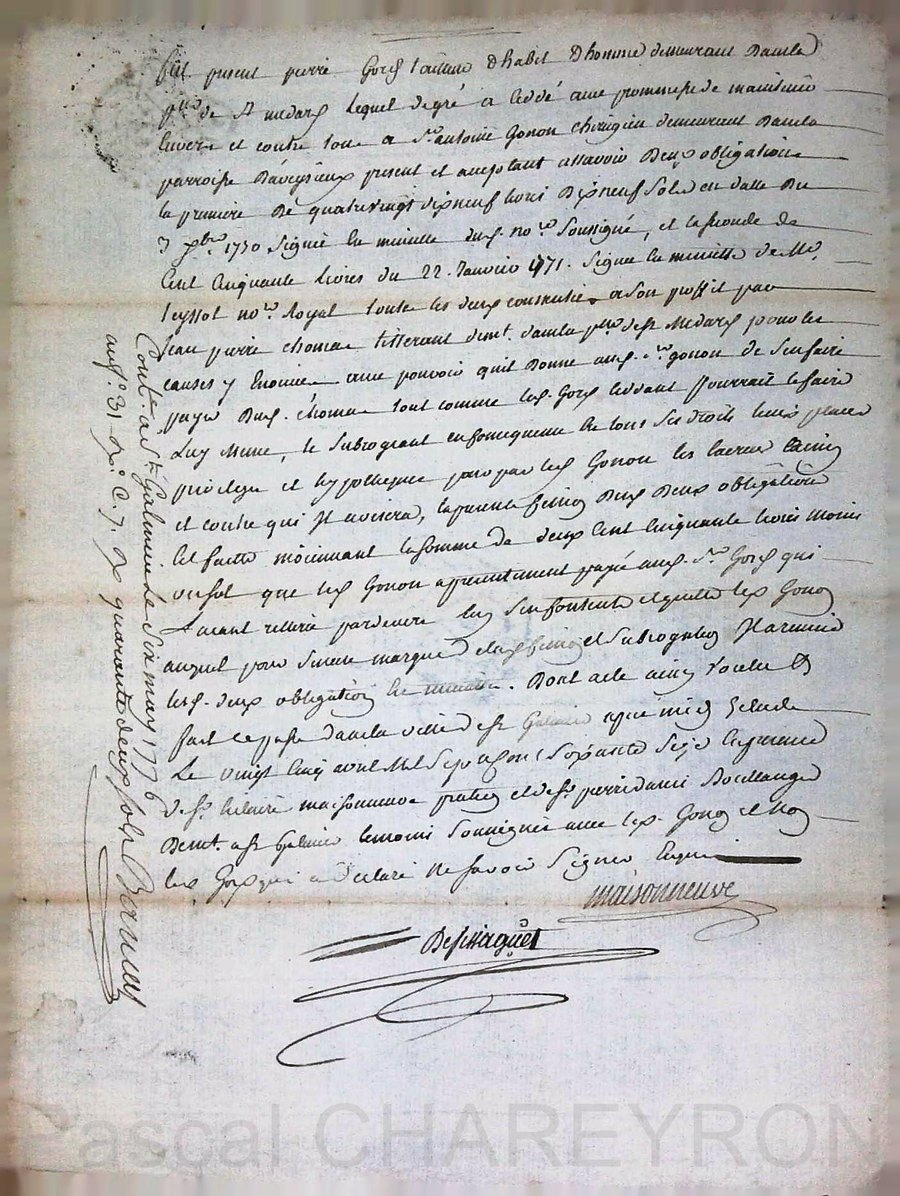 fut present pierre Gord tailleur dhabit Dhomme demeurant Dans la
psse de St medard lequel de gré a ceddé avec promesse de maintenir
Envers et contre tous a Sr antoine Gonon chirugien demeurant Dans la
parroisse Daveysieux present et acceptant assavoir Deux obligations
la premiere De quatrevingt dixneuf livres Dixneuf Sols en datte Du
3 1770 Signée En minutte dud. nore Soussigné, et la seconde de
Cent Cinquante livres du 22. Janvier 1771. Signée En minutte de Me
teyssot nore Royal toutes les deux consenties a Son proffit par
Jean pierre chomat tisserant demt. dans la psse de St Medard pour les
causes y Enoncées avec pouvoir quil Donne aud. Sr gonon de Sen faire
payer Dud. chomat tout comme led. Gord ceddant pourrait le faire
Luy meme, le Subrogeant en consequence En tous Ses droits lieux places
privilege et hypotheques pour par led Gonon les Exercer ainsy
et contre qui Il avisera, la presente Cession Desd Deux obligations
Est faitte moiennant la somme de deux Cent Cinquante livres moins
un sol que led Gonon a presentement payé aud. Sr Gord qui
layant retirée pardevers luy Sen contente et quitte led Gonon
auquel pour Sureté marque de lad Cession et Subrogation Il a remis
lesd. deux obligations En minutte. Dont acte ainsy voulu
fait et passé dans la ville de St Galmier apres midy
Le vingt Cinq avril Mil Sept Cent Soixante Seize En presence
de Sr hilaire maisonneuve praticien et de Sr pierre Boullanger
Demt. a St Galmier temoins Soussignés avec led. Gonon et Non
led Gord qui a Declaré ne savoir Signer Enquis
maisonneuve
Deshaguet
Cont. a St Galmier Le Six may 1776
quarante deux sols Bernet
Pascal CHAREYRON